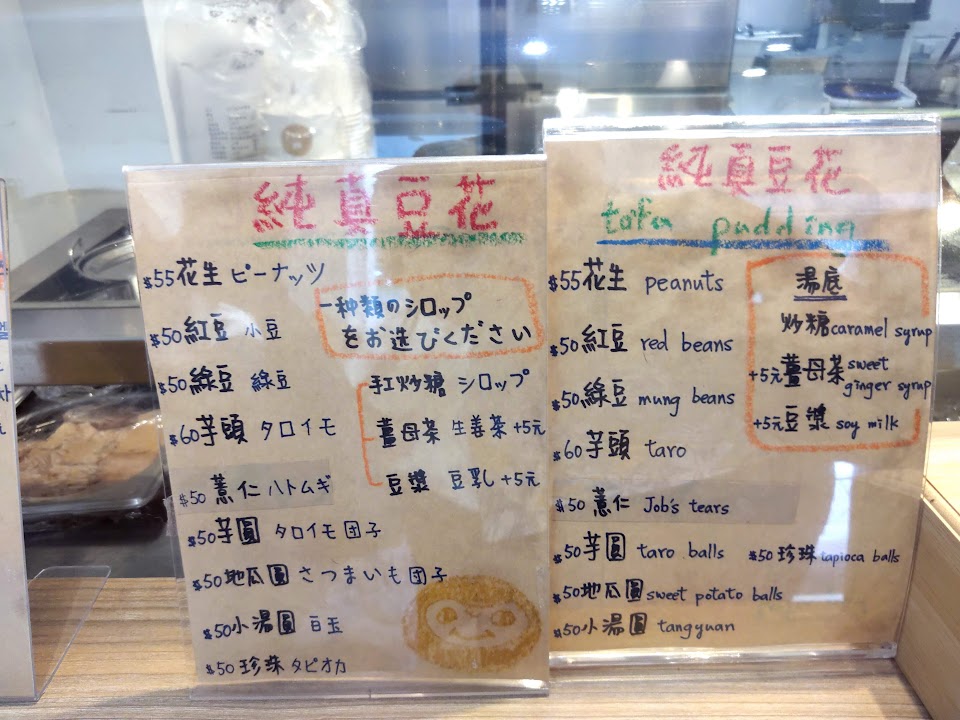 純真豆花
$55花生 ピーナッツ
一种類のシロップ
をお選びください
$50紅豆 小豆
$50綠豆 綠豆
$60芋頭 タロイモ
$50 薏仁 ハトムギ
$50芋圓 タロイモ団子
$50地瓜圓 さつまいも団子
$50小湯圓 白玉
$50 珍珠 タピオカ
紅炒糖 シロップ
薑母茶 生姜茶 +5元
豆漿 豆乳 +5元
純真豆花
tofu pudding
$55花生 peanuts
$50紅豆 red beans
$50綠豆 mung beans
$60芋頭 taro
$50 薏仁 Job's tears
$50芋圓 taro balls
$50 珍珠 tapioca balls
$50地瓜圓 sweet potato balls
$50小湯圓 tangyuan
湯底
炒糖 caramel syrup
+5元薑母茶 sweet
ginger syrup
+5元豆漿 soy milk